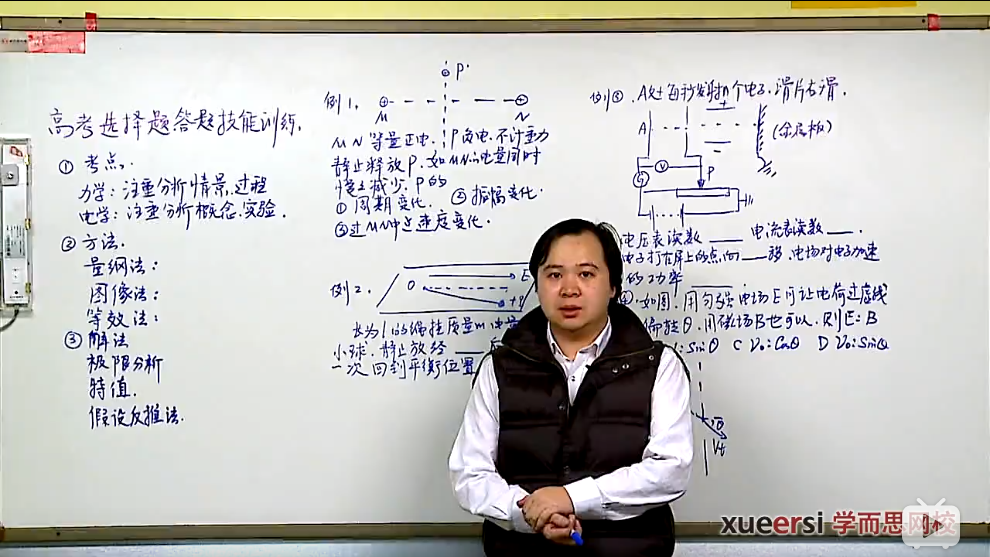 高考选择题答题技能训练.
① 考点.
力学: 注重分析情景.过程
电学: 注重分析概念.实验.
② 方法.
量纲法:
图像法:
等效法:
③ 解法
极限分析
特值.
假设反推法.
P.
例1.
M
N
MN等量正电.P负电.不计重力
静止释放P.如MN电量同时
慢慢减少.P的
① 周期变化.
② 振幅变化.
③过MN中点速度变化.
例2.
O
E
+q
长为l的绳拴质量m.电量
小球.静止放经
一次回到平衡位置
例③. A处每秒发射n个电子.滑片右滑.
A
V
G
P
(金属板)
电压表读数 ___ 电流表读数 ___.
电子打在屏上的点向 ___ 移.电场对电子加速
的功率
④.如图.用匀强电场E可让电荷过虚线
偏转θ.用磁场B也可以.则E:B
:Sinθ C V₀:Cosθ D V₀:Sinθ
θ
Vt
xueersi 学而思网校